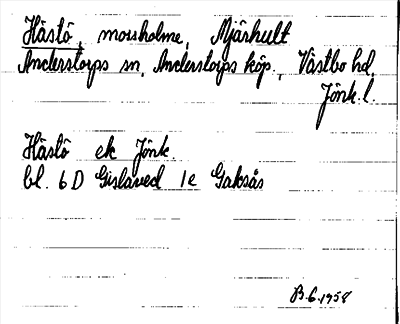 Hästö, mossholme, Mjärhult
Anderstorps sn, Anderstorps köp., Västbo hd,
Jönk. l.
Hästö ek Jönk.
bl. 6 D Gislaved 1e Gaksås
B. G. 1958